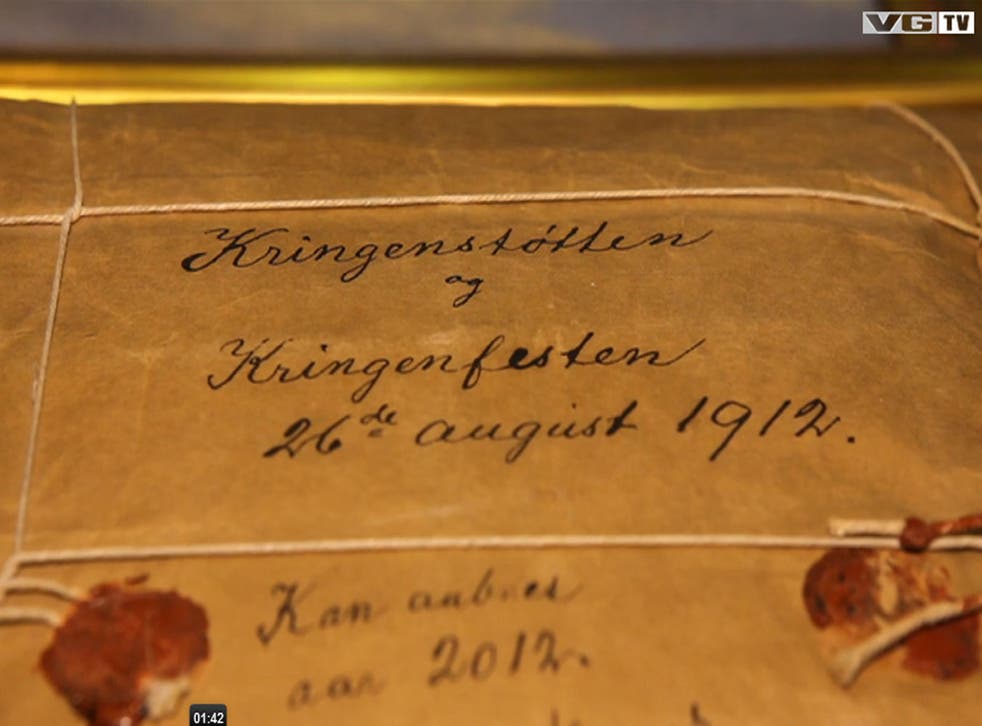 VGTV
Kringenstötten
og
Kringenfesten
26de august 1912.
Kan aabnes
aar 2012.
01:42